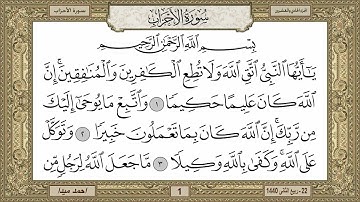 سورة الأحزاب
الجزء الحادي والعشرون
سُورَةُ الْأَحْزَابِ
بِسْمِ اللَّهِ الرَّحْمَٰنِ الرَّحِيمِ
يَا أَيُّهَا النَّبِيُّ اتَّقِ اللَّهَ وَلَا تُطِعِ الْكَافِرِينَ وَالْمُنَافِقِينَ ۗ إِنَّ
اللَّهَ كَانَ عَلِيمًا حَكِيمًا ١ وَاتَّبِعْ مَا يُوحَىٰ إِلَيْكَ
مِن رَّبِّكَ ۚ إِنَّ اللَّهَ كَانَ بِمَا تَعْمَلُونَ خَبِيرًا ٢ وَتَوَكَّلْ
عَلَى اللَّهِ ۚ وَكَفَىٰ بِاللَّهِ وَكِيلًا ٣ مَّا جَعَلَ اللَّهُ لِرَجُلٍ مِّن
22 - ربيع الثاني 1440
1